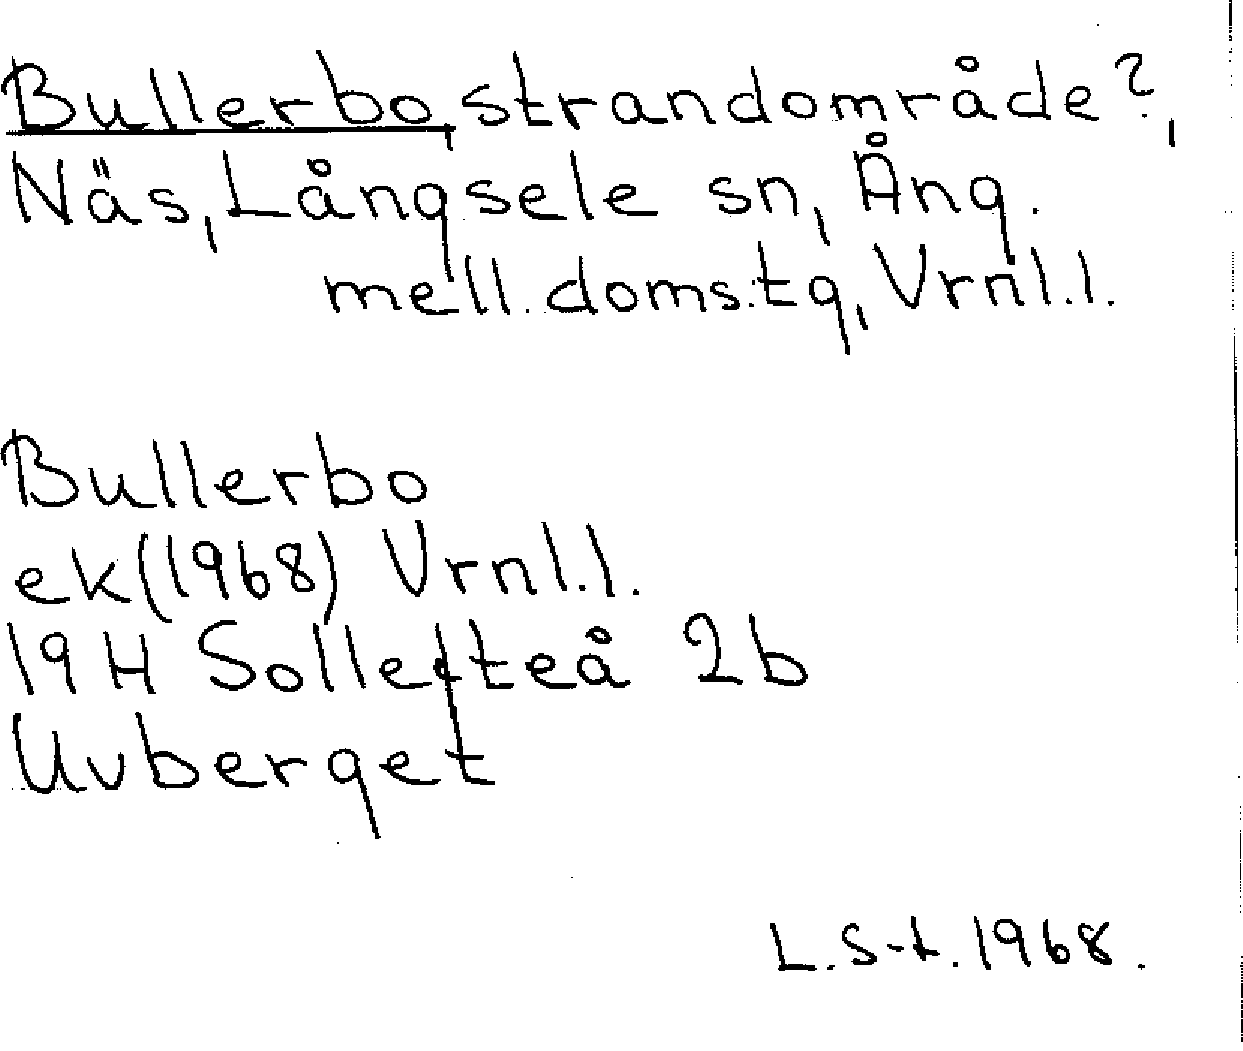 Bullerbo, strandområde?,
Näs, Långsele sn, Ång.
mell. doms.tg, Vrnl.l.
Bullerbo
ek(1968) Vrnl.l.
19 H Sollefteå 2b
Uvberget
L. S-t. 1968.